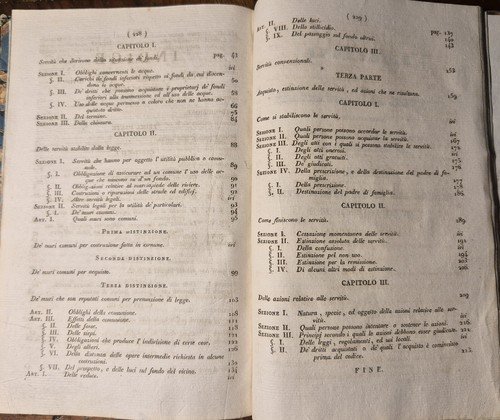 ( 228 )
CAPITOLO I.
Servitù che derivano dalla situazione de' fondi. pag. 42
SEZIONE I. Obblighi concernenti le acque. ivi
§. II. Carichi de' fondi inferiori rispetto ai fondi da cui discendono le acque. 50
§. III. De' dritti che possono acquistare i proprietarj de' fondi
inferiori alla trasmissione ed all' uso delle acque. 58
§. IV. Uso delle acque permesso a coloro che non ne hanno acquistato dritto. 66
SEZIONE II. Del termine. 75
SEZIONE III. Della chiusura. 84
CAPITOLO II.
Delle servitù stabilite dalla legge. 88
SEZIONE I. Servitù che hanno per oggetto l' utilità pubblica o comunale. 89
§. I. Obbligazione di assicurare ad un comune l' uso delle acque che nascono in un fondo. 90
§. II. Obbligazioni relative al marciapiede delle riviere. 91
§. III. Costruzioni o riparazioni delle strade ed edificj. ivi
§. IV. Altre servitù legali. ivi
SEZIONE II. Servitù legali per la utilità de' particolari. 93
§. I. De' muri comuni. 94
ART. I. Quali muri sono comuni. 95
PRIMA DISTINZIONE.
De' muri comuni per costruzione fatta in comune. ivi
SECONDA DISTINZIONE.
De' muri comuni per acquisto. 99
TERZA DISTINZIONE.
De' muri che son reputati comuni per presunzione di legge.
ART. II. Obblighi della comunione.
ART. III. Effetti della comunione.
§. II. Delle fosse.
§. III. Delle siepi.
§. IV. Obbligazioni che produce l' indivisione di certe cose.
§. V. Degli alberi.
§. VI. Della distanza delle opere intermedie richiesta in alcune costruzioni.
§. VII. Del prospetto, e delle luci sul fondo del vicino.
ART. I. Delle vedute. ivi
( 229 )
ART. II. Delle luci.
§. VIII. Dello stillicidio. pag. 139
§. IX. Del passaggio sul fondo altrui. 140
143
CAPITOLO III.
Servitù convenzionali. ivi
TERZA PARTE 158
Acquisto, estinzione delle servitù, ed azioni che ne risultano. 159
CAPITOLO I.
Come si stabiliscono le servitù. ivi
SEZIONE I. Quali persone possono accordare le servitù. ivi
SEZIONE II. Quali persone possono acquistar la servitù. 167
SEZIONE III. Degli atti con i quali si possono stabilire le servitù. 171
§. I. Degli atti onerosi. ivi
§. II. Degli atti gratuiti.
§. III. De' giudicati.
SEZIONE IV. Della prescrizione, e della destinazione del padre di famiglia.
§. I. Della prescrizione. ivi
§. II. Destinazione del padre di famiglia.
CAPITOLO II.
Come finiscono le servitù. 189
SEZIONE I. Cessazione momentanea delle servitù. ivi
SEZIONE II. Estinzione assoluta delle servitù.
§. I. Della confusione. ivi
§. II. Estinzione pel non uso.
§. III. Estinzione per la remissione.
§. IV. Di alcuni altri modi di estinzione. 206
CAPITOLO III.
Delle azioni relative alle servitù. 209
SEZIONE I. Natura, specie, ed oggetto delle azioni relative alle servitù. ivi
SEZIONE II. Quali persone possono intentare o sostenere le azioni.
SEZIONE III. Principj secondo i quali le azioni debbono esser giudicate.
§. I. Delle leggi, regolamenti, ed usi locali. ivi
§. II. De' dritti acquistati o de' quali l' acquisto è cominciato prima del codice.
FINE.